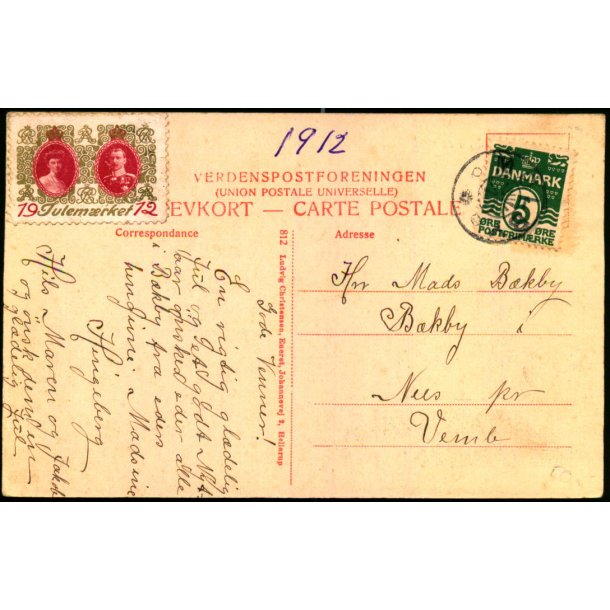 1912
19 Julemærket 12
VERDENSPOSTFORENINGEN
(UNION POSTALE UNIVERSELLE)
EVKORT — CARTE POSTALE
DANMARK
5
ØRE ØRE
POSTFRIMÆRKE
Correspondance
Adresse
Hrr Mads Bækby
Bækby i
Nees pr
Vemb
812 Ludvig Christensen, Eneret, Johannevej 2, Hellerup
Gode Venner!
En rigtig glædelig
Jul og Samt godt Nyt
aar ønskes eder alle
i Bækby fra eders
hengivne Madsine
Kingeberg
Hils Maren og Jakob
og ønsk dem en
glædelig Jul